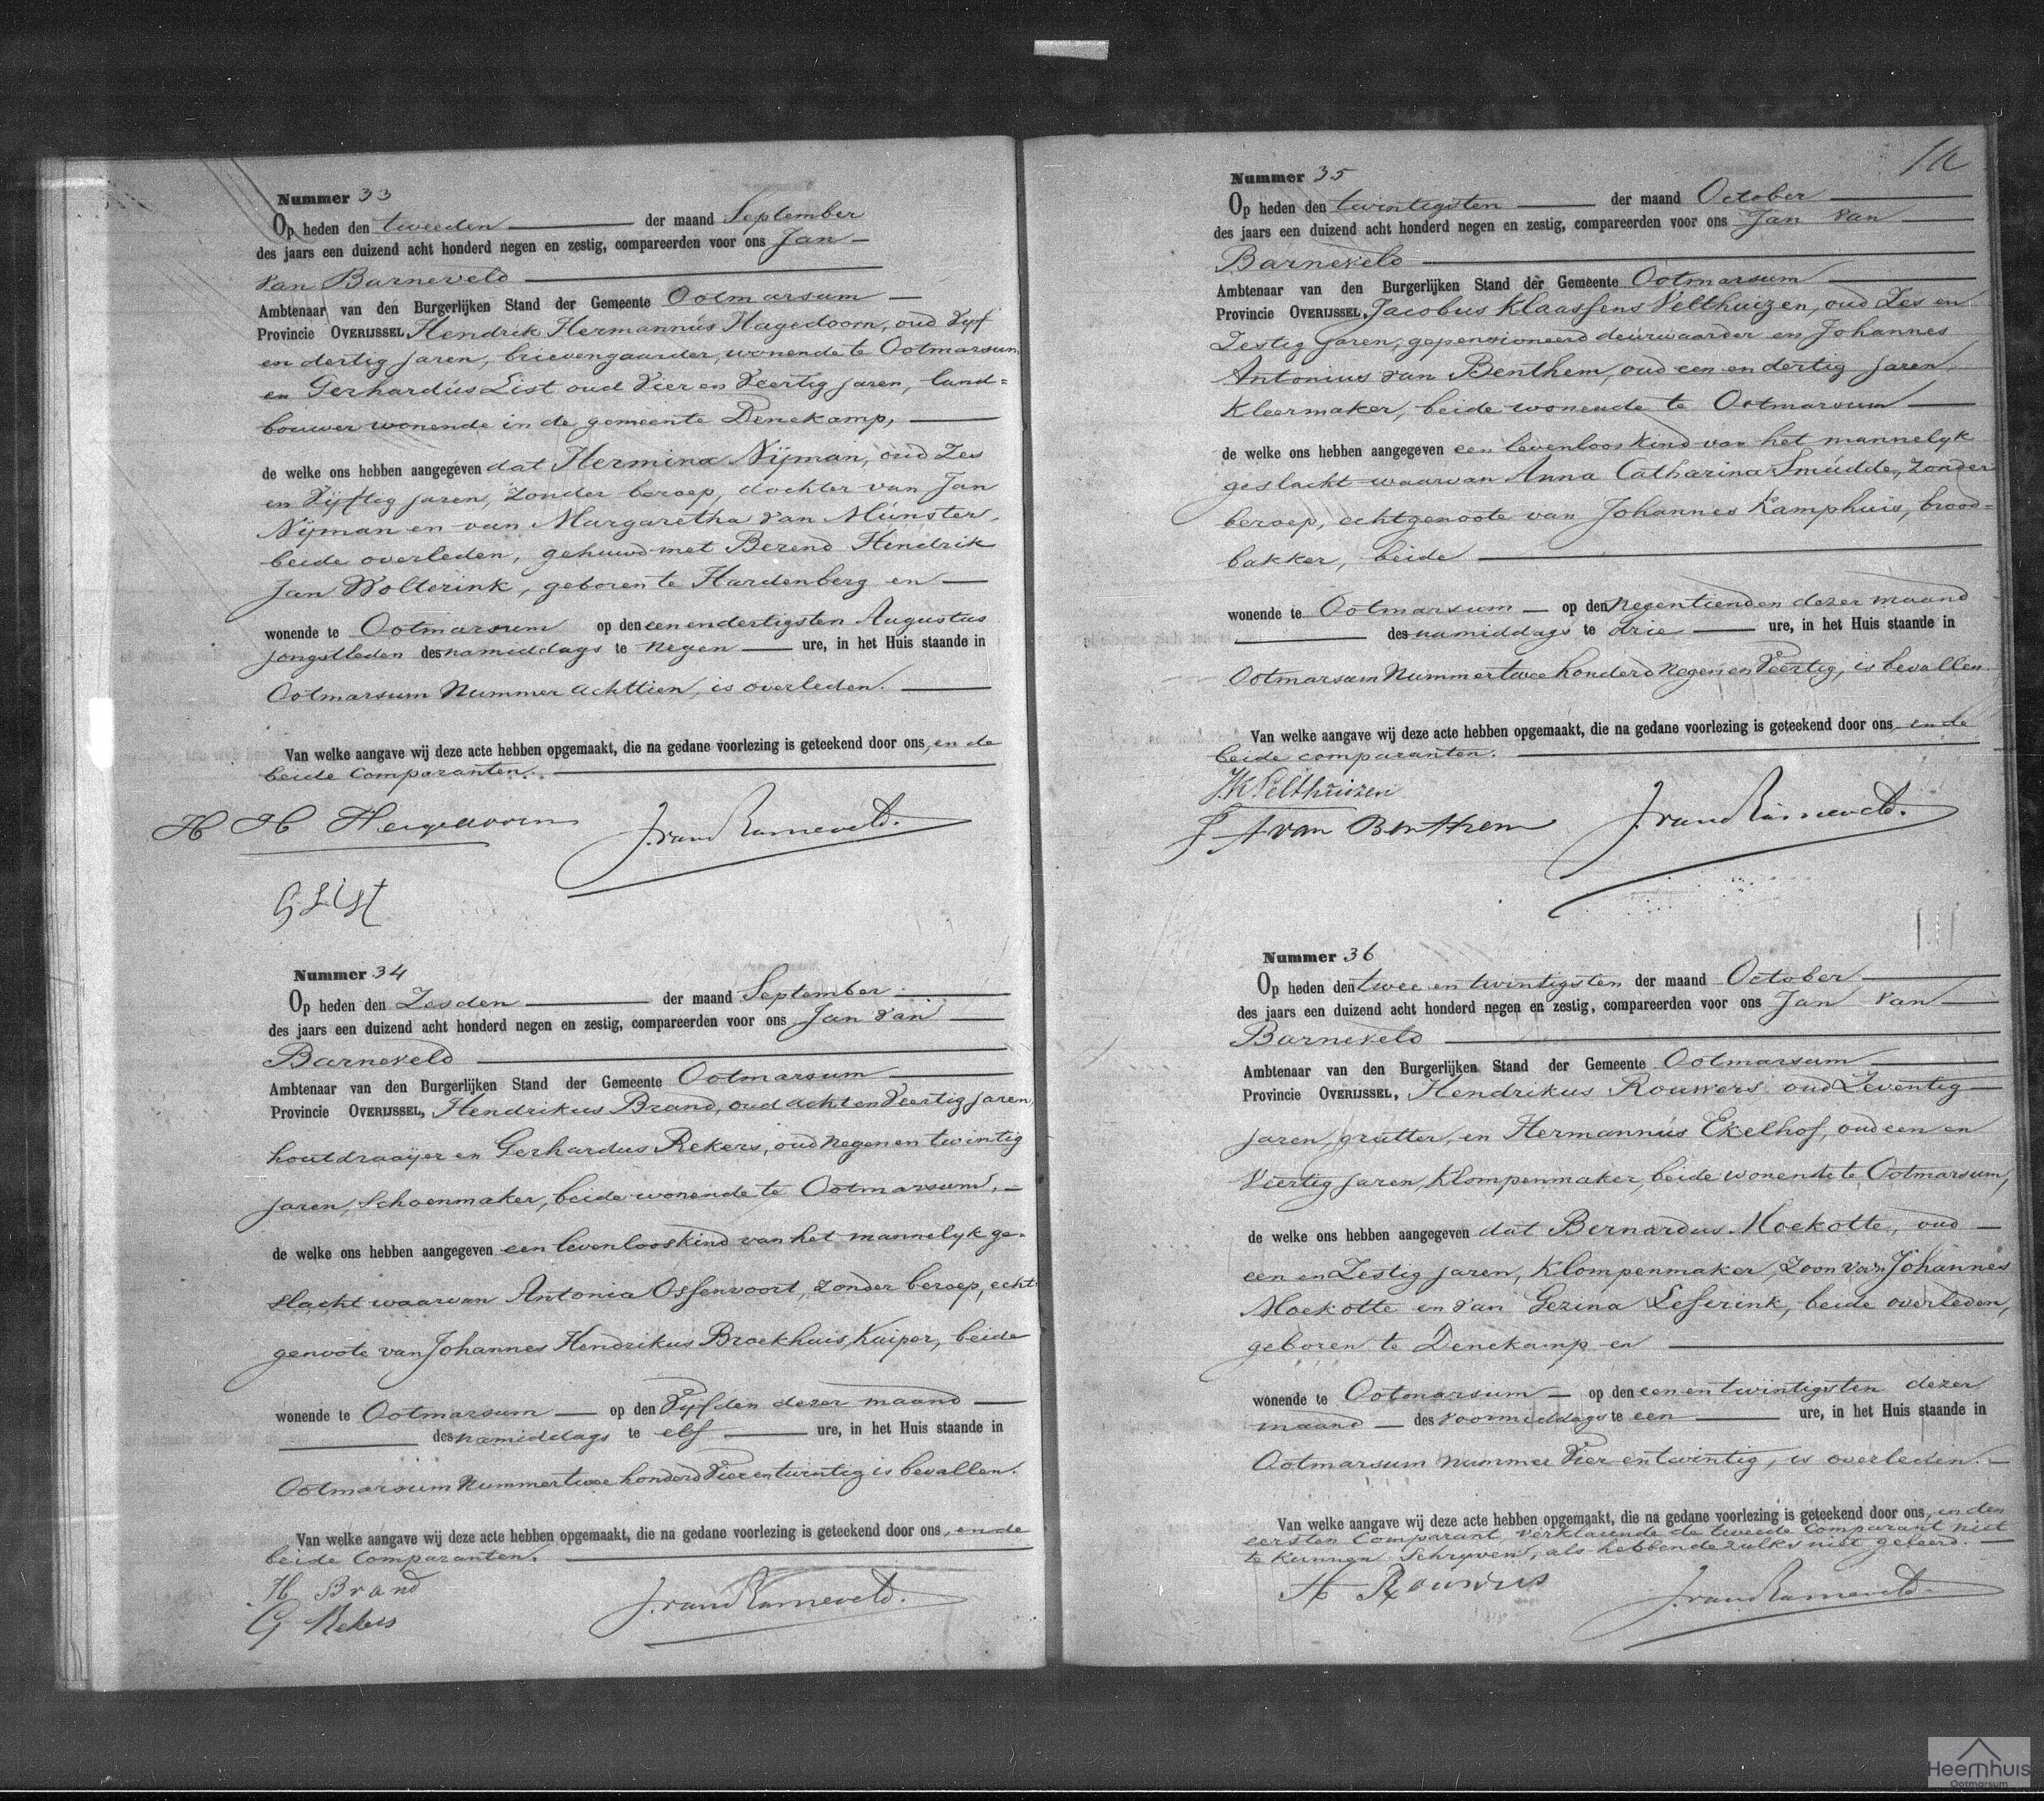 Nummer 33
Op heden den tweeden der maand September
des jaars een duizend acht honderd negen en zestig, compareerden voor ons Jan
van Barneveld
Ambtenaar van den Burgerlijken Stand der Gemeente Ootmarsum
Provincie OVERIJSSEL, Hendrik Hermannús Hagedoorn, oud Vyf
en dertig jaren, brievengaarder, wonende te Ootmarsum,
en Gerhardús List oud Vier en Veertig jaren, land=
bouwer wonende in de gemeente Denekamp,
de welke ons hebben aangegeven dat Hermina Nijman, oud Zes
en Vijftig jaren, zonder beroep, dochter van Jan
Nijman en van Margaretha van Múnster,
beide overleden, gehuwd met Berend Hendrik
Jan Wolterink, geboren te Hardenberg en
wonende te Ootmarsum op den een en dertigsten Augustus
jongstleden des namiddags te negen ure, in het Huis staande in
Ootmarsum Nummer achttien, is overleden.
Van welke aangave wij deze acte hebben opgemaakt, die na gedane voorlezing is geteekend door ons, en de
beide comparanten.
H H Hagedoorn J. van Barneveld.
G List
Nummer 34
Op heden den Zesden der maand September
des jaars een duizend acht honderd negen en zestig, compareerden voor ons Jan van
Barneveld
Ambtenaar van den Burgerlijken Stand der Gemeente Ootmarsum
Provincie OVERIJSSEL, Hendrikus Brand, oud acht en Veertig jaren,
houtdraaijer en Gerhardus Rekers, oud negen en twintig
jaren, schoenmaker, beide wonende te Ootmarsum,
de welke ons hebben aangegeven een levenloos kind van het mannelyk ge-
slacht waarvan Antonia Ossenvoort, zonder beroep, echt
genoote van Johannes Hendrikus Broekhuis, Kuiper, beide
wonende te Ootmarsum op den Vijfden dezer maand
des namiddags te elf ure, in het Huis staande in
Ootmarsum Nummer twee honderd Vier en twintig is bevallen.
Van welke aangave wij deze acte hebben opgemaakt, die na gedane voorlezing is geteekend door ons, en de
beide comparanten.
H Brand
G Rekers J. van Barneveld.
Nummer 35
Op heden den twintigsten der maand October
des jaars een duizend acht honderd negen en zestig, compareerden voor ons Jan van
Barneveld
Ambtenaar van den Burgerlijken Stand der Gemeente Ootmarsum
Provincie OVERIJSSEL, Jacobus Klaassens Velthuizen, oud Zes en
Zestig Jaren, gepensioneerd deurwaarder en Johannes
Antonius van Benthem, oud een en dertig jaren,
Kleermaker, beide wonende te Ootmarsum
de welke ons hebben aangegeven een levenloos kind van het mannelyk
geslacht waarvan Anna Catharina Smúdde, zonder
beroep, echtgenoote van Johannes Kamphuis, brood=
bakker, beide
wonende te Ootmarsum op den Negentienden dezer maand
des namiddags te drie ure, in het Huis staande in
Ootmarsum Nummer twee honderd Negen en Veertig, is bevallen.
Van welke aangave wij deze acte hebben opgemaakt, die na gedane voorlezing is geteekend door ons en de
beide comparanten.
J K Velthuizen
J A van Benthem J. van Barneveld.
Nummer 36
Op heden den twee en twintigsten der maand October
des jaars een duizend acht honderd negen en zestig, compareerden voor ons Jan van
Barneveld
Ambtenaar van den Burgerlijken Stand der Gemeente Ootmarsum
Provincie OVERIJSSEL, Hendrikus Rouwers oud Zeventig
jaren, grutter, en Hermannús Ekelhof, oud een en
Veertig jaren, Klompenmaker, beide wonende te Ootmarsum,
de welke ons hebben aangegeven dat Bernardus Moekotte, oud
een en Zestig jaren, Klompenmaker, Zoon van Johannes
Moekotte en van Gezina Leferink, beide overleden,
geboren te Denekamp en
wonende te Ootmarsum op den een en twintigsten dezer
maand des voormiddags te een ure, in het Huis staande in
Ootmarsum nummer Vier en twintig, is overleden.
Van welke aangave wij deze acte hebben opgemaakt, die na gedane voorlezing is geteekend door ons, en den
eersten Comparant, verklarende de tweede Comparant niet
te kunnen Schryven, als hebbende zulks niet geleerd.
H Rouwers J. van Barneveld.
Heemhuis
Ootmarsum